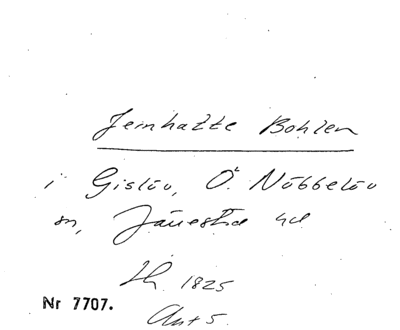 Jernhatte Bohlen
i Gislöv, Ö. Nöbbelöv
sn, Järrestad hd
Ih 1825
Nr 7707.
Ant 5.